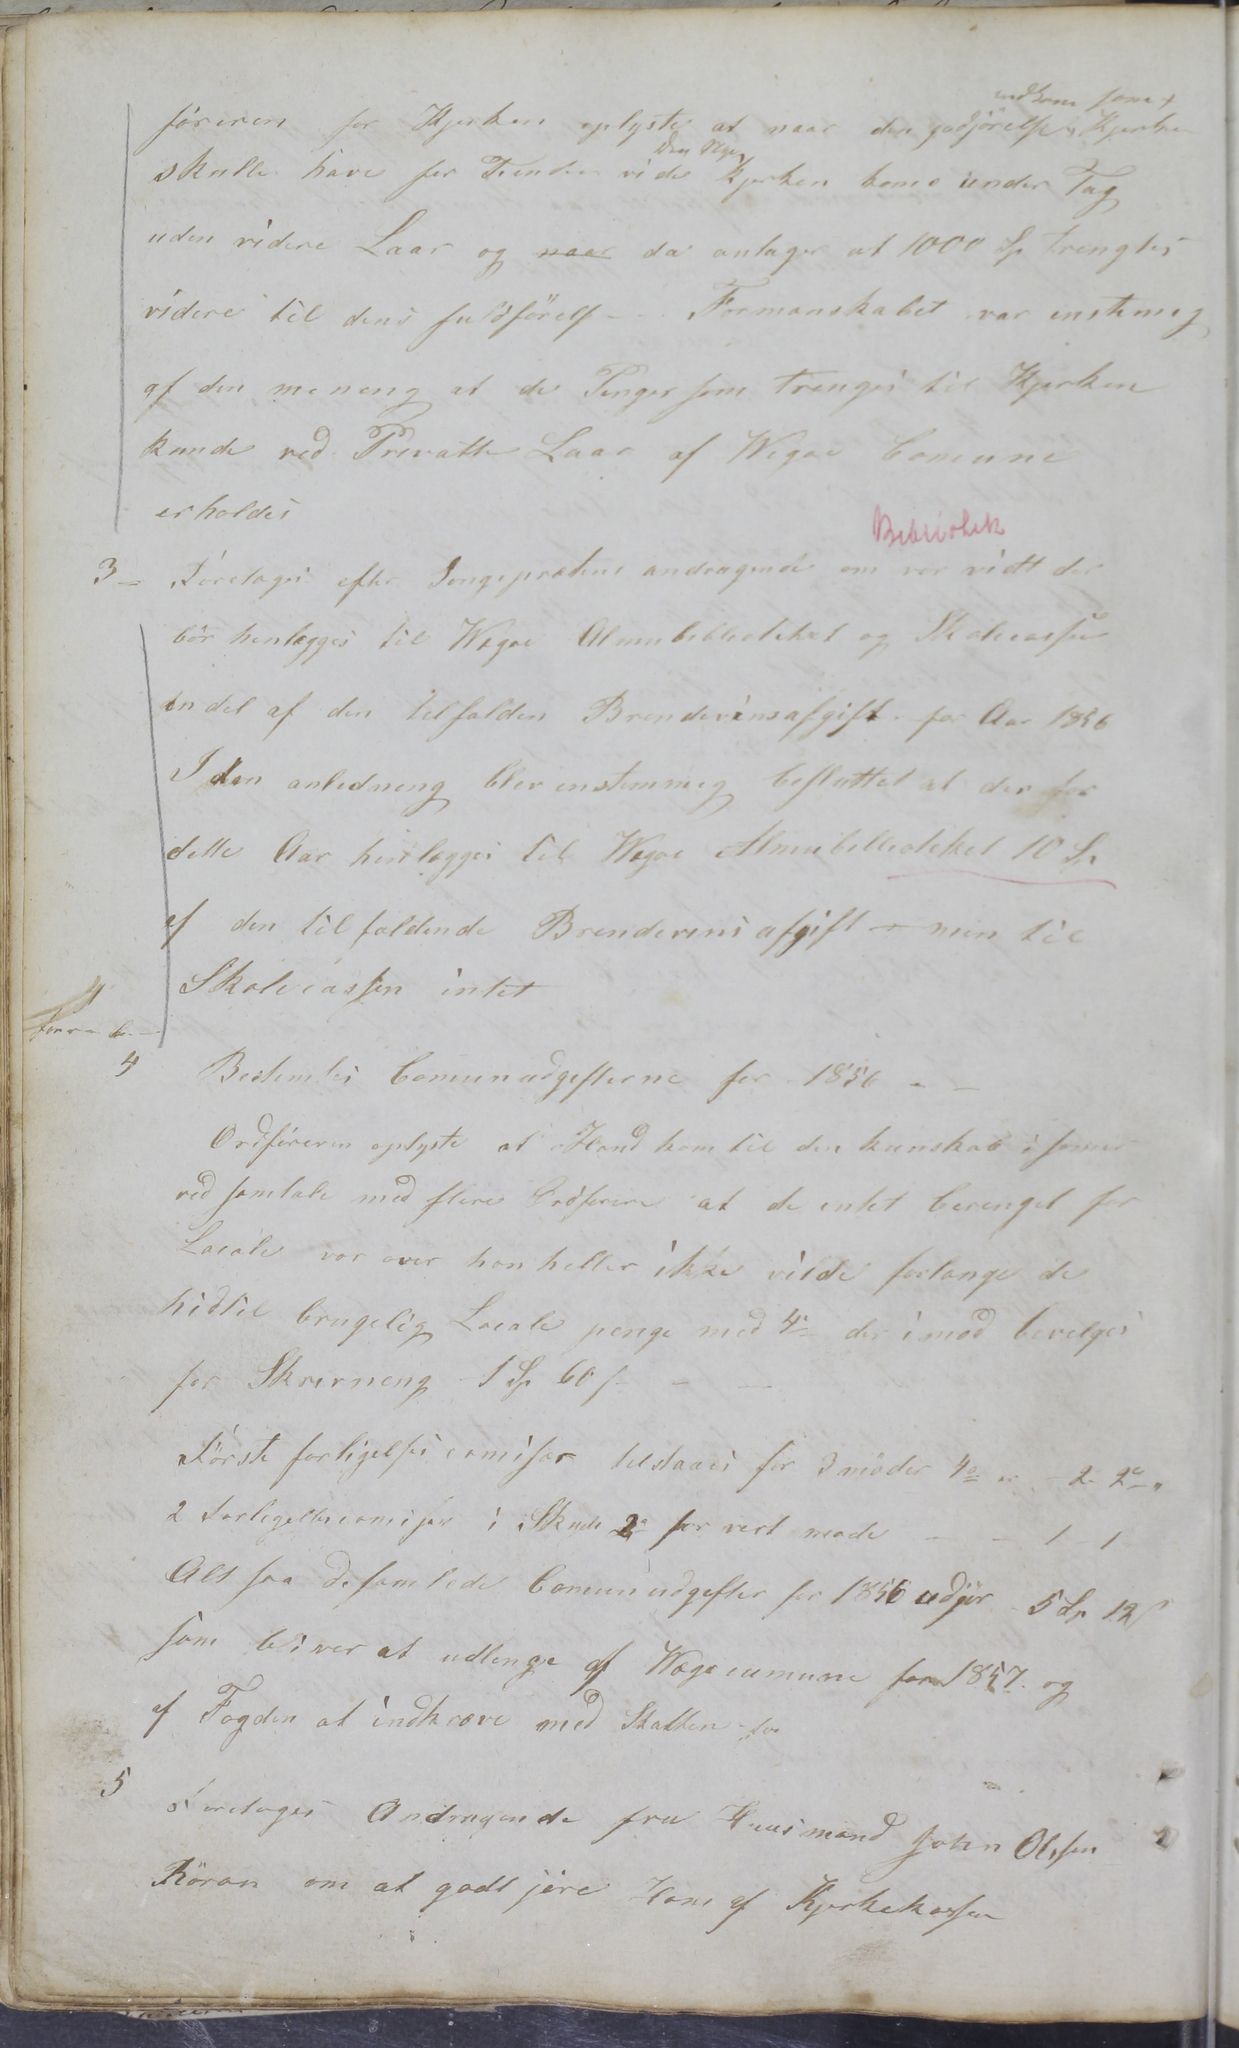 indkom som
föreren for Kjerken oplyste at naar den godjörelse Kjerken
skulle have for Tienden vide den Nye Kjerken komo under Tag
uden videre Laar og naar da antager at 1000 Sp trengtes
videre til dens fuldförelse - Formanskabet var enstemig
af den mening at de Penger som trenges til Kjerken
kunde ved Private Laan af Wegøe Comune
erholdes
Bibliotek
3 - Foretoges efter Songeprestens andragende om vor vidtt der
bör henlegges til Wegøe Almubiblioteket og Skolecassen
en del af den tilfalden Brendevinsafgift for Aar 1856
I den anledning blev enstemmig besluttet at der for
dette Aar henlegges til Wegøe Almubiblioteket 10 Sp
af den tilfaldende Brendevinsafgift - men til
Skolecassen intet
4 Bestemtes Comunudgifterne for 1856 - -
Ordföreren oplyste at Hand kom til den kunskab i sommer
ved samtale med flere Ordförere at de intet berenget for
Locale vor over han heller ikke vilde forlange de
hidtil brugelig Locale penge med 4 der imod bevelges
for Skrivning 1 Sp 60 s - -
Förste forligelses comisær tilstaaes for 3 möder 4 - 2 - 2
2 Forligelsecomisær i Skuds 2 for vert möde - - 1 - 1
Alt saa de samlede Comunudgifter for 1856 udgjör 5 Sp 12 s
som bliver at udlenge af Wegøecumune for 1857 og
af Fogden at indkræve med Skatten
5 Foretoges Andragende fra Huusmand John Olssen
Röran om at godtjöre Ham af Kjerkekassen